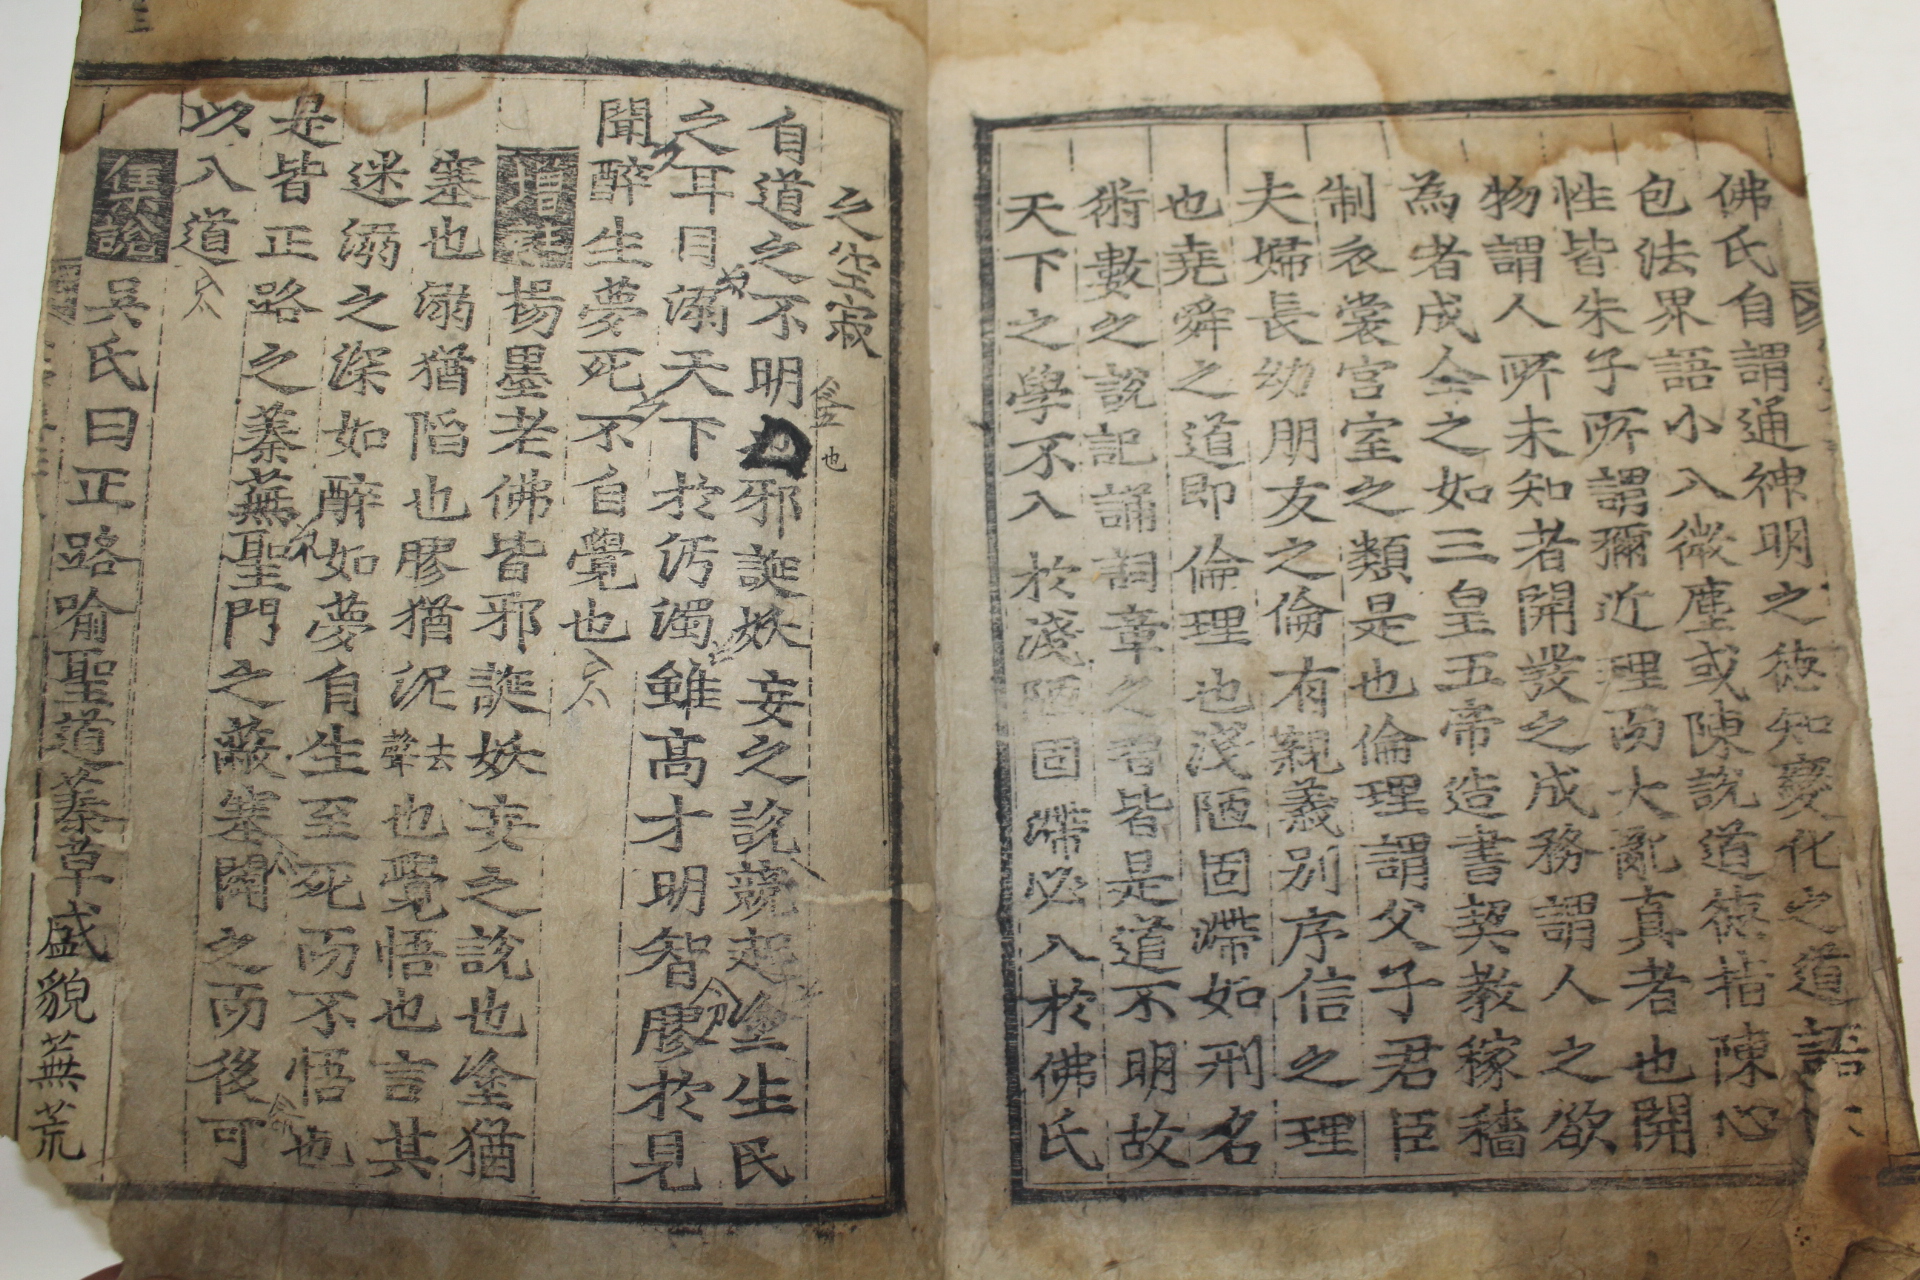 佛氏自謂通神明之德知變化之道語
包法界語小入微塵或陳說道德指陳心
性皆朱子所謂彌近理而大亂真者也開
物謂人所未知者開發之成務謂人之欲
為者成全之如三皇五帝造書契教稼穡
制衣裳宮室之類是也倫理謂父子君臣
夫婦長幼朋友之倫有親義別序信之理
也堯舜之道即倫理也淺陋固滯如刑名
術數之說記誦詞章之習皆是道不明故
天下之學不入於淺陋固滯必入於佛氏
之空寂也
自道之不明也邪誕妖妄之說競起塗生民
之耳目溺天下於汚濁雖高才明智膠於見
聞醉生夢死不自覺也
增註楊墨老佛皆邪誕妖妄之說也塗猶
塞也溺猶陷也膠猶泥去聲也覺悟也言其
迷溺之深如醉如夢自生至死而不悟也
是皆正路之蓁蕪聖門之蔽塞闢之而後可
以入道
集說吳氏曰正路喻聖道蓁草盛貌蕪荒